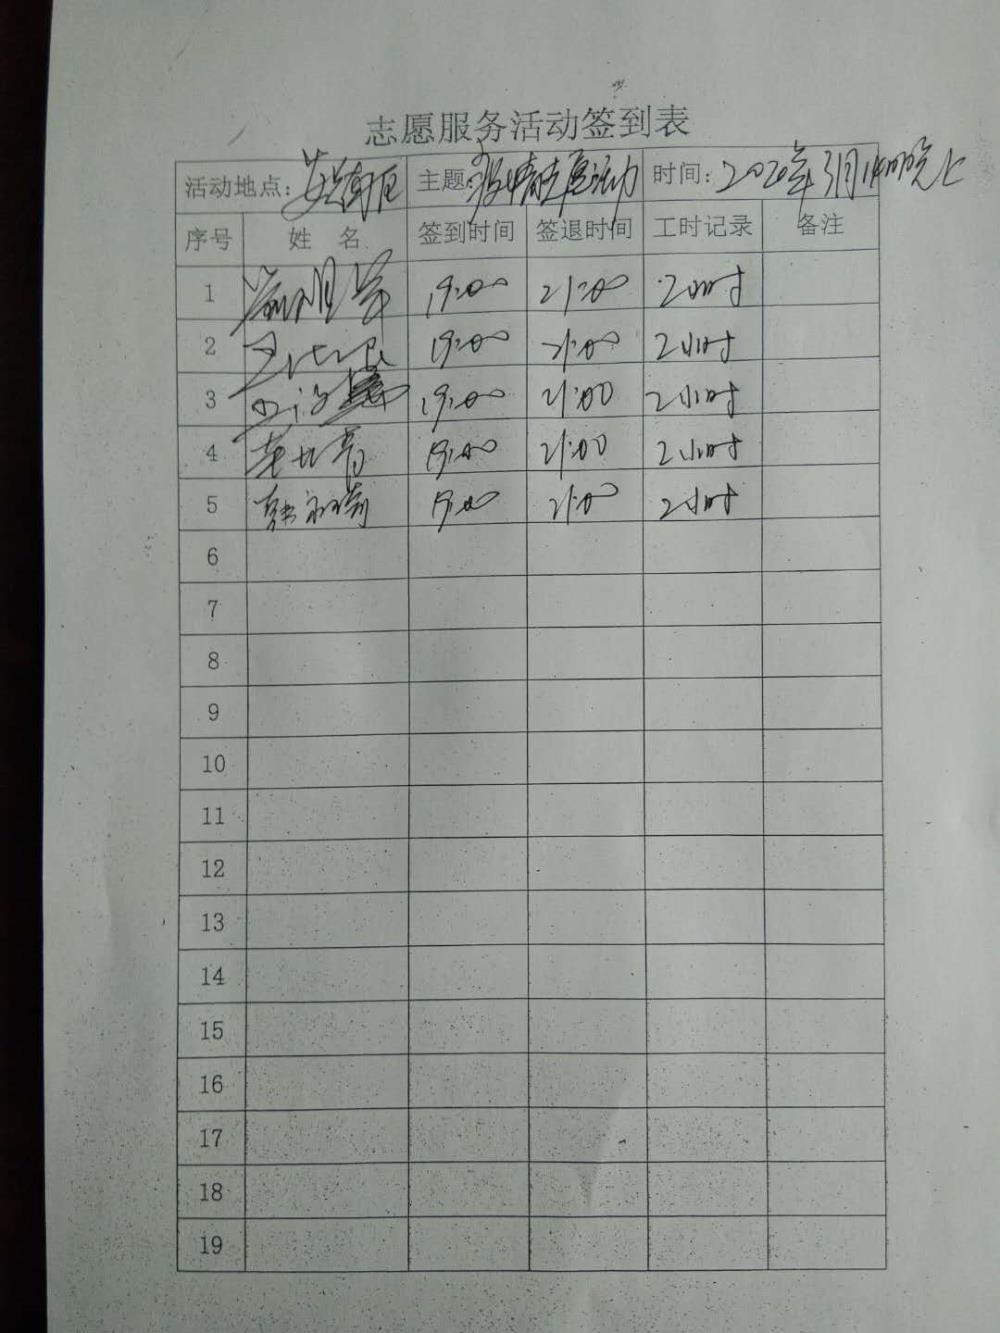 志愿服务活动签到表
活动地点： 主题： 时间：2020年3月14日晚上
序号 姓 名 签到时间 签退时间 工时记录 备注
1 19:00 21:00 2小时
2 19:00 21:00 2小时
3 19:00 21:00 2小时
4 19:00 21:00 2小时
5 19:00 21:00 2小时
6
7
8
9
10
11
12
13
14
15
16
17
18
19